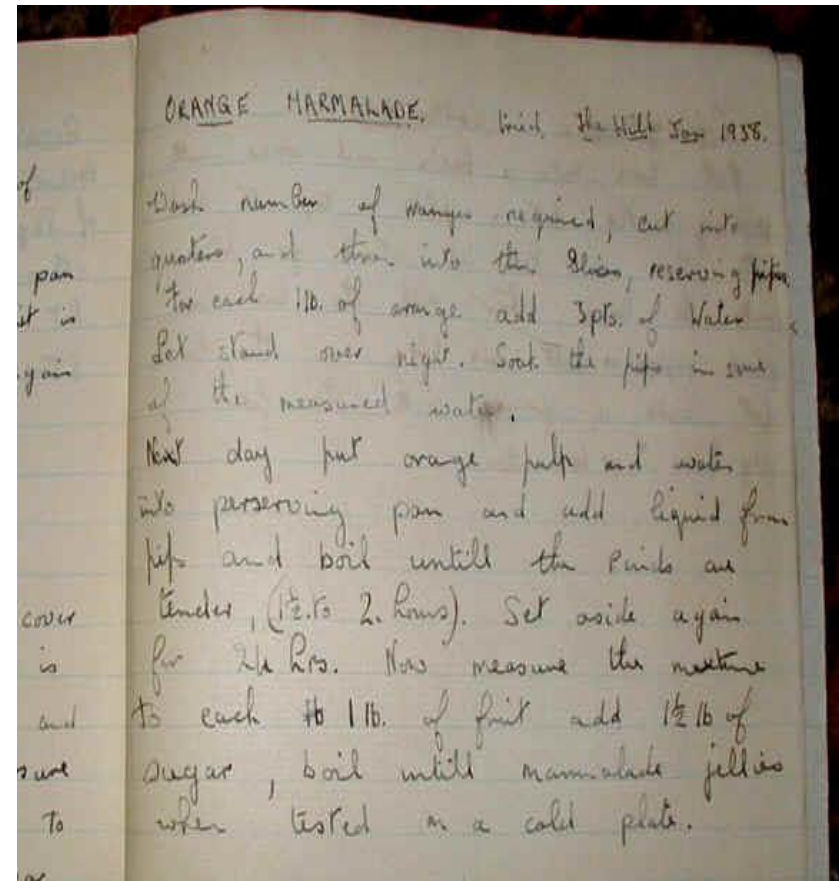 ORANGE MARMALADE. tried, The Hill Jan 1938.
Wash number of oranges required, cut into
quaters, and then into thin Slices, reserving pips.
For each 1lb. of orange add 3pts. of Water
Let stand over night. Soak the pips in some
of the measured water.
Next day put orange pulp and water
into perserving pan and add liquid from
pips and boil untill the rinds are
tender, (1½ to 2. hours). Set aside again
for 24 hrs. Now measure the mixture
to each 1 lb. of fruit add 1½ lb of
sugar, boil untill marmalade jellies
when tested on a cold plate.
of
pan
it is
again
cover
is
and
sure
to